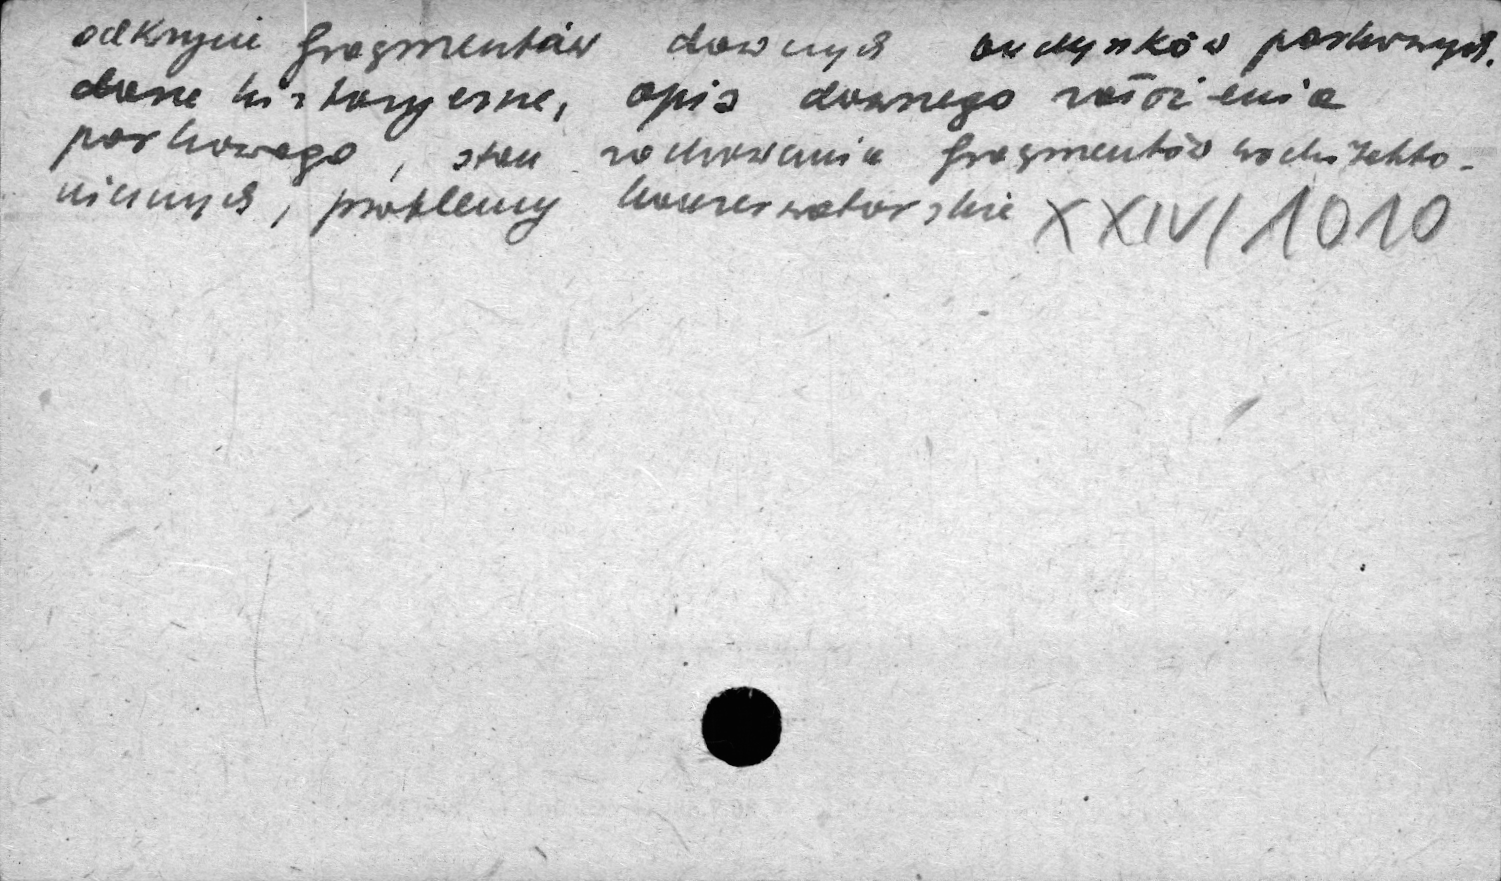 odkrycie fragmentów dawnych budynków parkowych.
dane historyczne, opis dawnego założenia
parkowego, stan zachowania fragmentów architekto-
nicznych, problemy konserwatorskie XXIV/1010